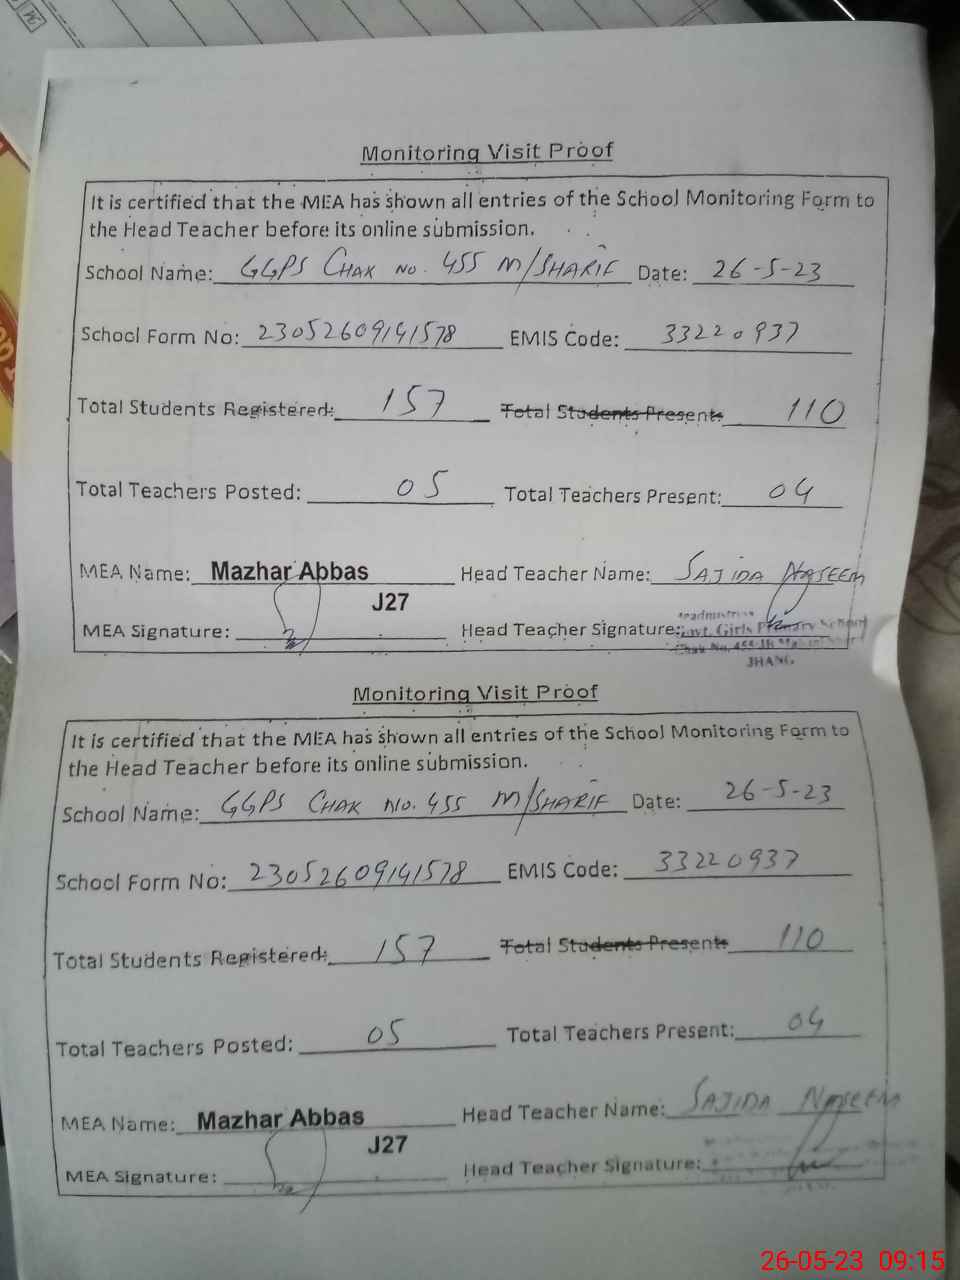 Monitoring Visit Proof
It is certified that the MEA has shown all entries of the School Monitoring Form to
the Head Teacher before its online submission.
School Name: GGPS CHAK NO. 455 M/SHARIF Date: 26-5-23
School Form No: 23052609141578 EMIS Code: 33220937
Total Students Registered: 157 Total Students Present: 110
Total Teachers Posted: 05 Total Teachers Present: 04
MEA Name: Mazhar Abbas Head Teacher Name: SAJIDA NASEEM
J27
Headmistress
MEA Signature: Head Teacher Signature: Govt. Girls Primary School
Chak No. 455
JHANG
Monitoring Visit Proof
It is certified that the MEA has shown all entries of the School Monitoring Form to
the Head Teacher before its online submission.
School Name: GGPS CHAK NO. 455 M/SHARIF Date: 26-5-23
School Form No: 23052609141578 EMIS Code: 33220937
Total Students Registered: 157 Total Students Present: 110
Total Teachers Posted: 05 Total Teachers Present: 04
MEA Name: Mazhar Abbas Head Teacher Name: SAJIDA NASEEM
J27
MEA Signature: Head Teacher Signature:
26-05-23 09:15